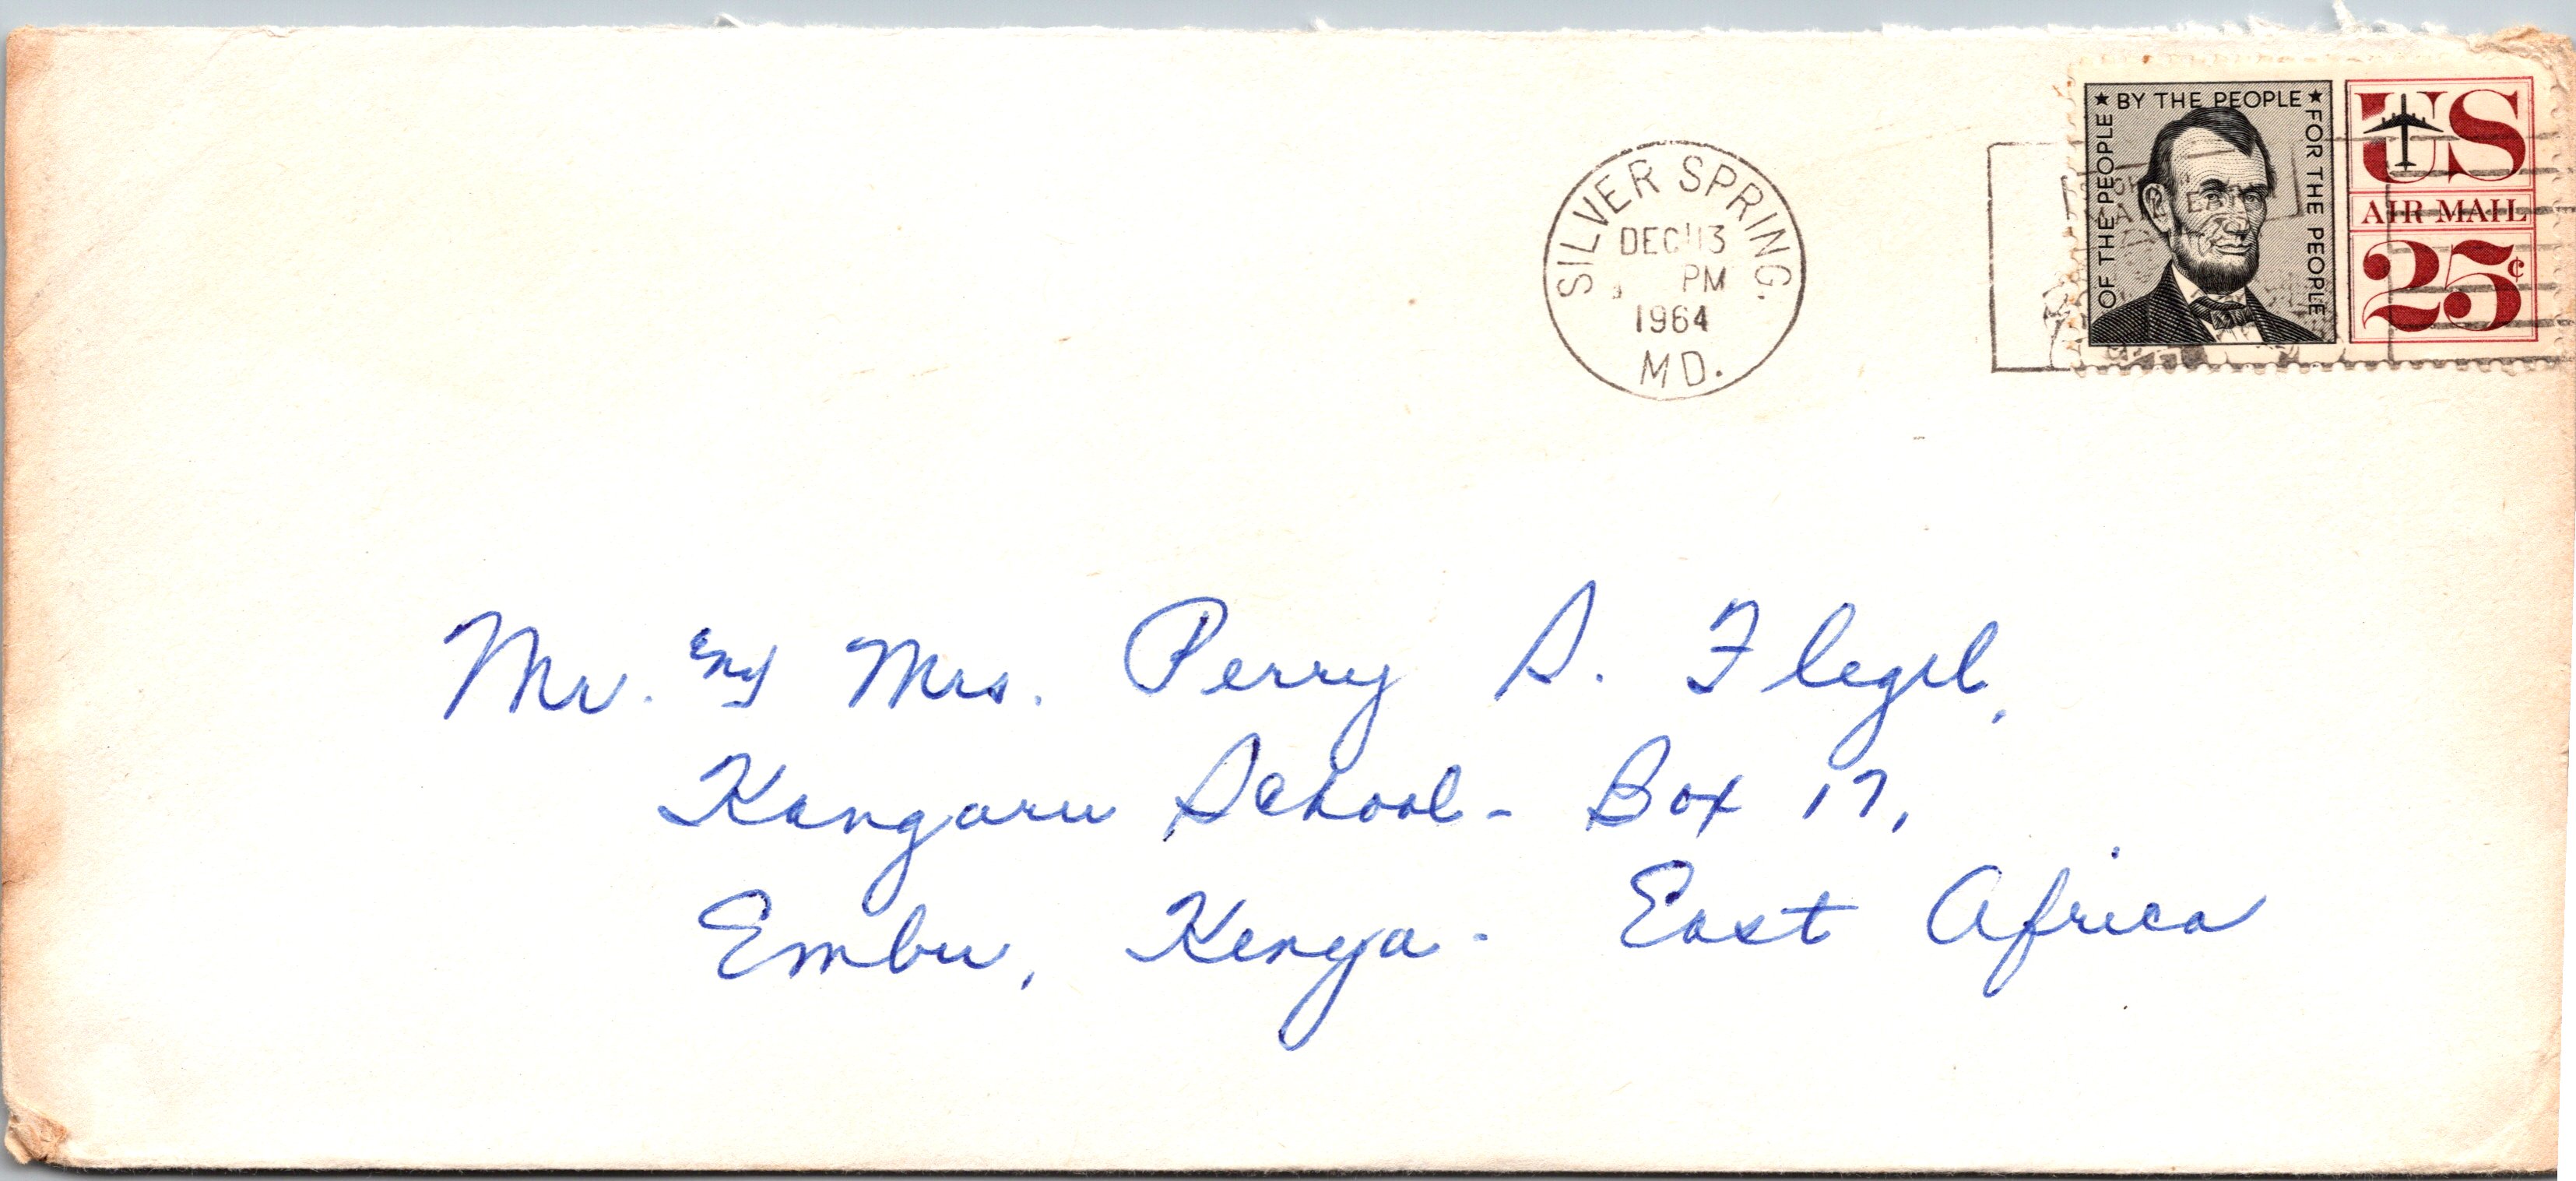 SILVER SPRING.
DEC 13
PM
1964
MD.
OF THE PEOPLE ★ BY THE PEOPLE ★ FOR THE PEOPLE
US
AIR MAIL
25¢
Mr. and Mrs. Perry S. Flegel,
Kangaru School - Box 17,
Embu, Kenya - East Africa